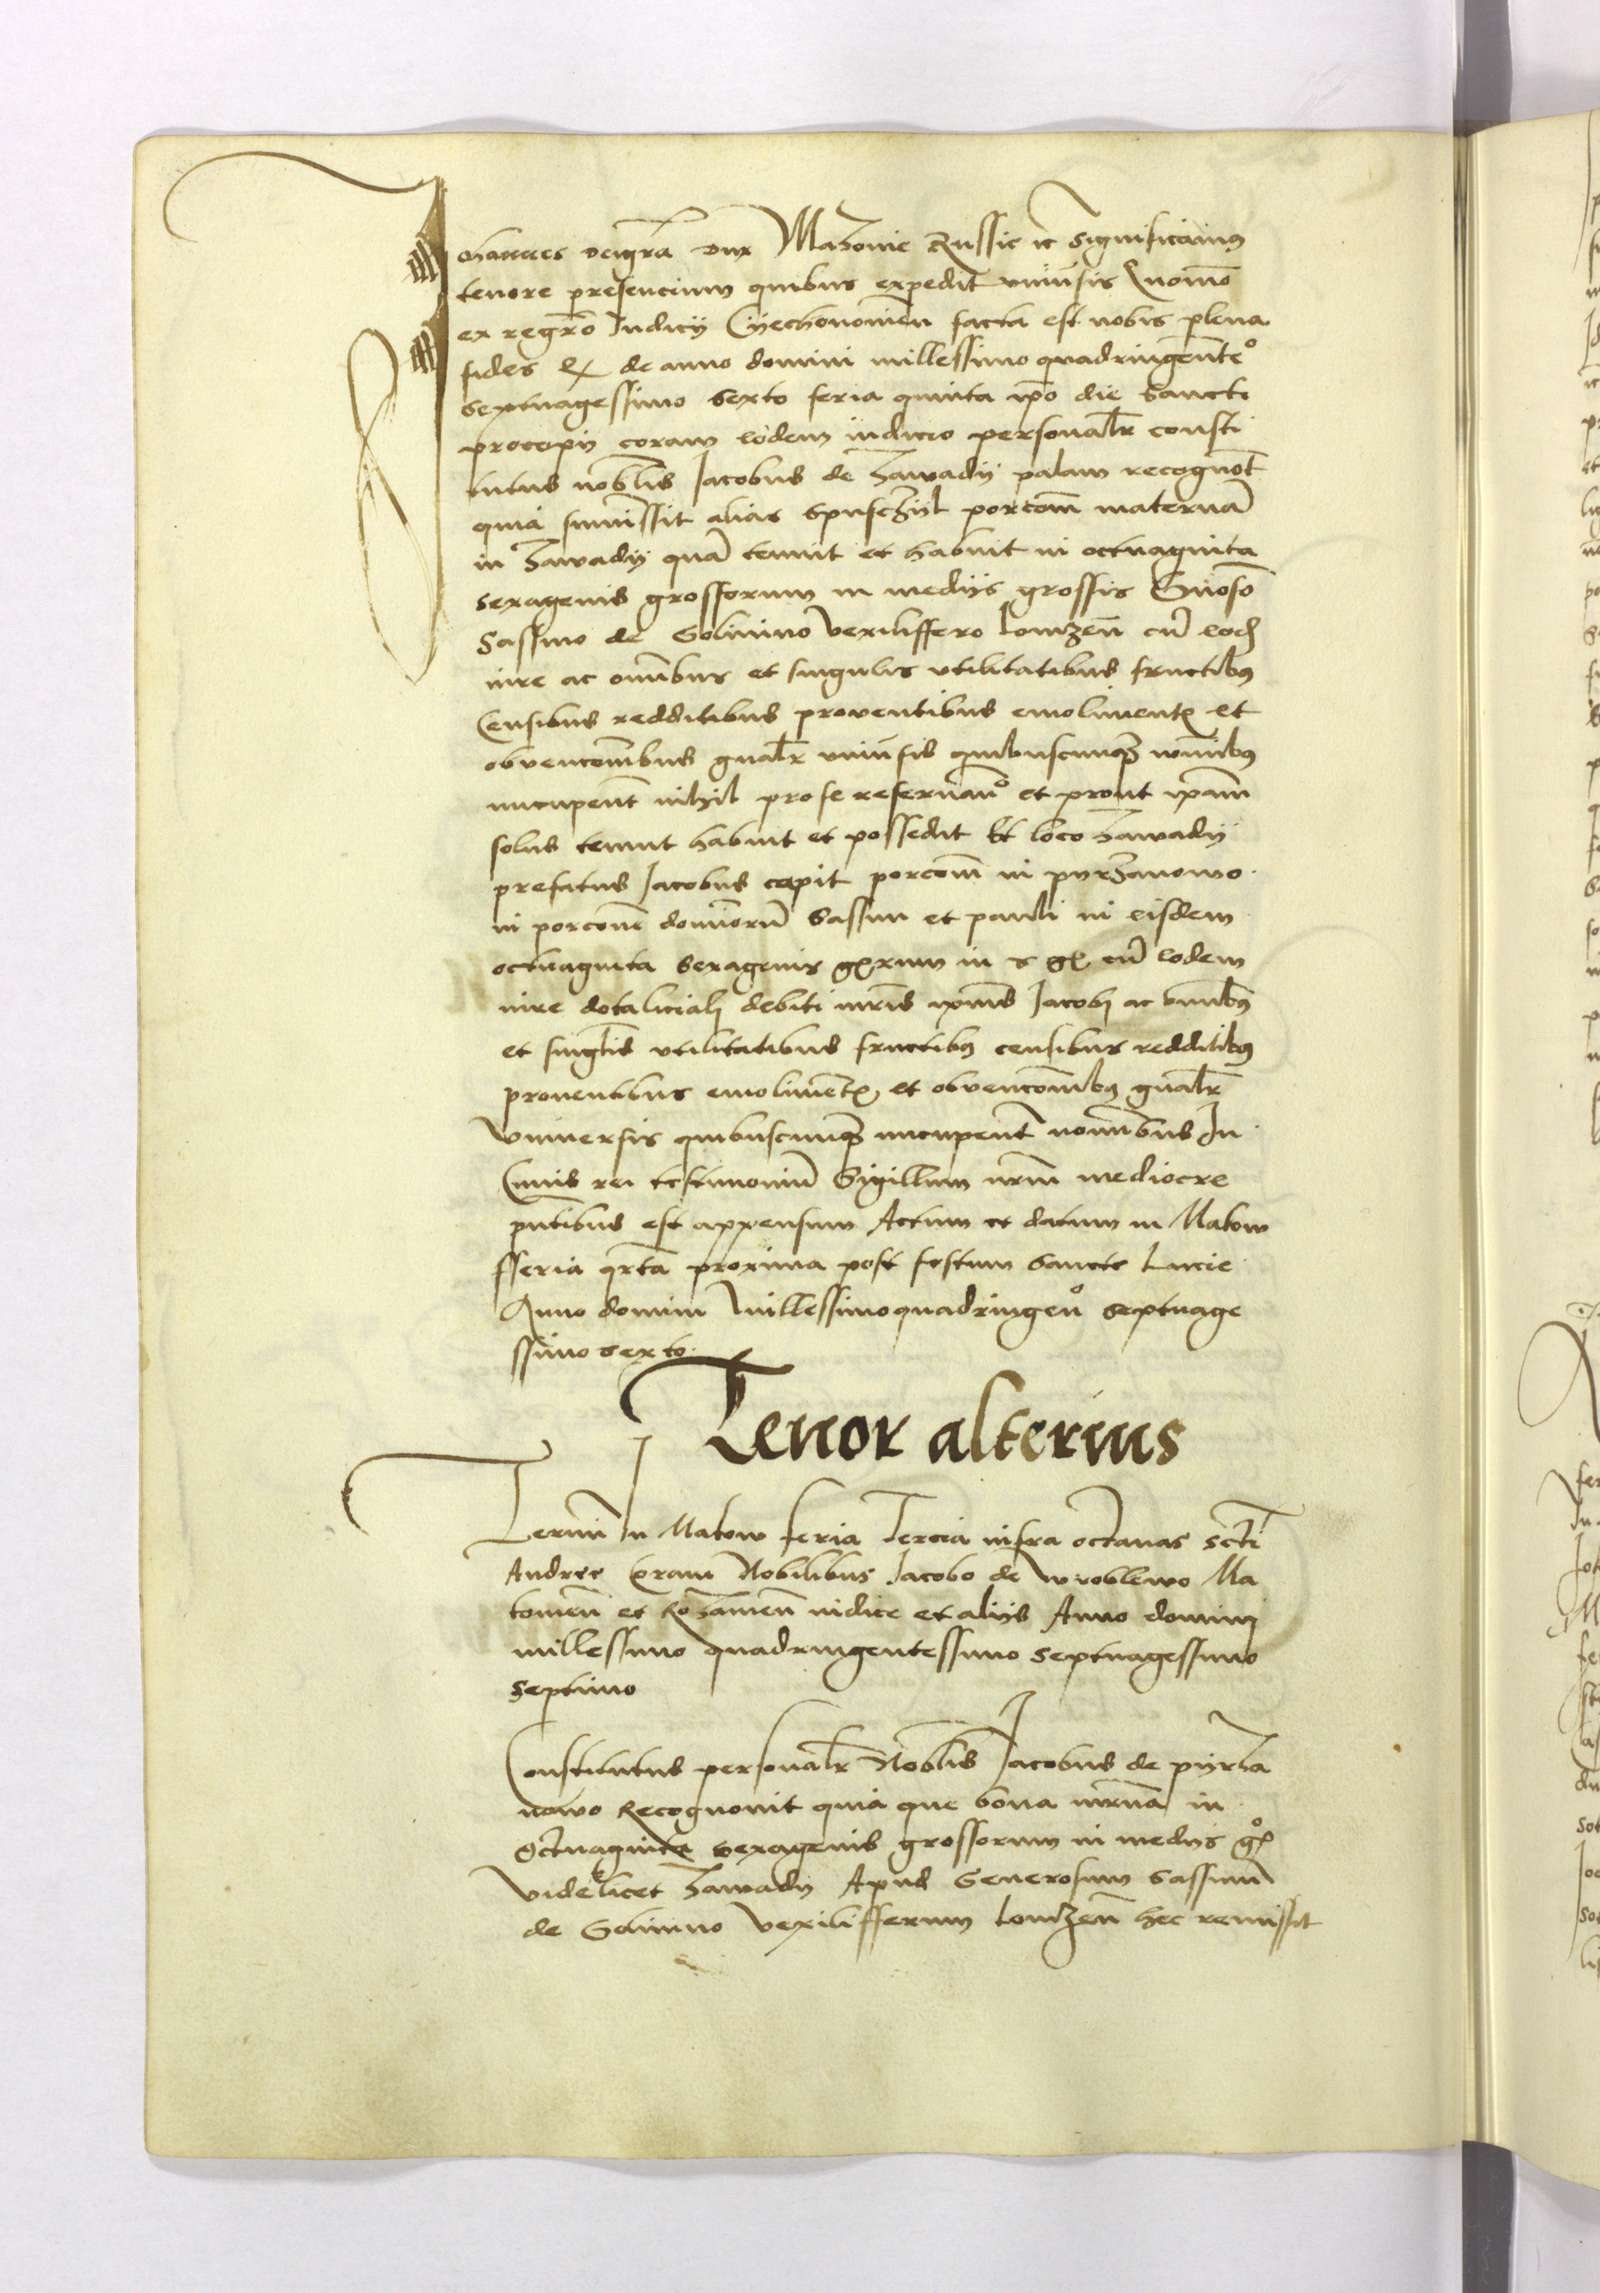 Johannes deigrā dux Mazovie Russie ꝛc Significamus
tenore presencium quibus expedit univ̄sis Quomō
ex regrō Judicy Cyechonovieñ facta est nobis plena
fides de anno domini millessimo quadringente°
Septuagessimo Sexto feria quinta ip̄o die Sancti
procopy coram eodem iudicio personalr̄ consti
tutus nobilis Jacobus de Zawady palam recognovit
quia sumissit alias Spusczyl porcōm maternā
in Zawady quā tenuit et habuit in octuaginta
Sexagenis grossorum in medys grossis Gn̄oso
Sassino de Golimino Vexiliffero Lomzeñ cū eodē
iure ac omībus et singulis utilitatibus fructibus
Censibus redditibus proventibus emolimentis et
obvencōnibus gn̄alr̄ univ̄sis quibuscunq̄ nōibus
nūcupent̄ nihil pro se reservan° et prout ipam
solus tenuit habuit et possedit Et loco Zawady
prefatus Jacobus capit porcōm in pyrzanowo
in porcōne dominorū Sassini et pauli in eisdem
octuaginta Sexagenis gr̄rum in s gr̄ cū eodem
iure dotaliciali debiti m̄ris ipius Jacobi ac omībus
et singlis utilitatibus fructibus censibus redditibus
proventibus emolimentis et obvencōnibus gn̄alr̄
Universis quibuscunq̄ nūcupent̄ nominibus In
Cuius rei testimoniū Sigillum nr̄m mediocre
pn̄tibus est appensum Actum et datum in Makow
fferia qrta proxima post festum Sancte Lucie
Anno domini Millessimoquadringen° Septuage
ssimo sexto
Tenor alterius
Termī In Makow feria Tercia infra octavas Scti
Andree Coram Nobilibus Jacobo de wroblewo Ma
kovieñ et Rozaneñ iudice et alys Anno domini
millessimo quadringentessimo Septuagessimo
Septimo
Constitutus personalr̄ Noblis Jacobus de pyrza
nowo Recognovit quia que bona mr̄na in
Octuaginta sexagenis grossorum in medys gr°
videlicet Zawady Apud Generosum Sassinū
de Golimino vexilifferum Lomzeñ hec remissit